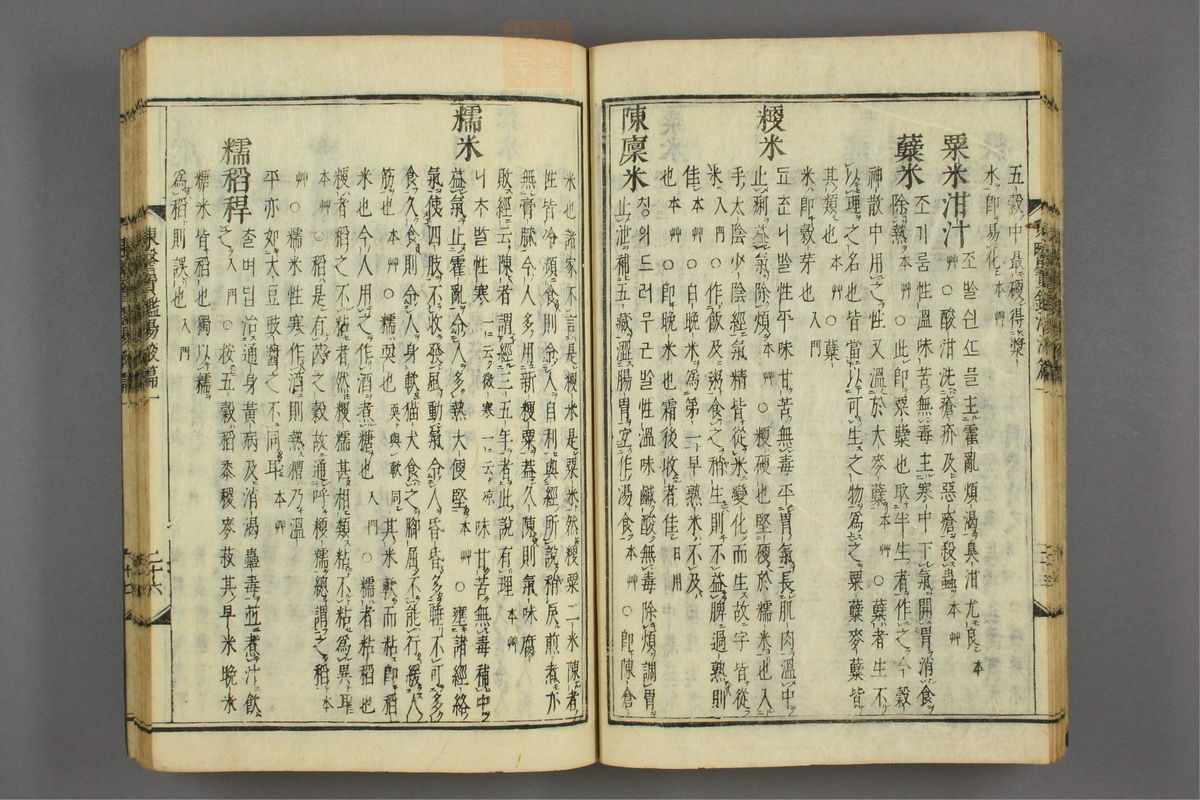 五穀中最硬得漿
水即易化本艸
粟米泔汁 조ᄡᆞᆯ신ᄯᅳ믈主霍亂煩渴臭泔尤良本
艸○酸泔洗瘡疥及惡瘡殺蟲本艸
糵米 조기룸性溫味苦無毒主寒中下氣開胃消食
除熱本艸○此即粟糵也取半生者作之今穀
神散中用之性又溫於大麥糵本艸○糵者生不
以理之名也皆當以可生之物爲之粟糵麥糵皆
其類也本艸○糵
米即穀芽也入門
粳米 됴ᄒᆞ니ᄡᆞᆯ性平味甘苦無毒平胃氣長肌肉溫中
止痢益氣除煩本艸○粳硬也堅硬於糯米也入
手太陰少陰經氣精皆從米變化而生故字皆從
米入門○作飯及粥食之稍生則不益脾過熟則
佳本艸○白晚米爲第一早熟米不及
也本艸○即晚米也霜後收者佳日用
陳廩米 의드러무근ᄡᆞᆯ性溫味鹹酸無毒除煩調胃
止泄補五藏澀腸胃宜作湯食本艸○即陳倉
米也諸家不言是粳米是粟米然粳粟二米陳者
性皆冷頻食則令人自利與經所說稍戾煎煮亦
無膏膩今人多用新粳粟蓋久陳則氣味腐
敗經云陳者謂經三五年者此說有理本艸
糯米 니ᄎᆞᄡᆞᆯ性寒一云微寒一云凉味甘苦無毒補中
益氣止霍亂令人多熱大便堅本艸○壅諸經絡
氣使四肢不收發風動氣令人昏昏多睡不可多
食久食則令人身軟猫犬食之脚屈不能行緩人
筋也本艸○糯耎也耎與軟同其米軟而粘即稻
米也今人用之作酒煮糖也入門○糯者粘稻也
粳者稻之不粘者然粳糯甚相類粘不粘爲異耳
本艸○稻是有芒之穀故通呼粳糯經謂之稻本
艸○糯米性寒作酒則熱糟乃溫
平亦如大豆豉醬之不同耳本艸
糯稻稈 ᄎᆞᆯ벼딥治通身黃病及消渴蠱毒並煮汁飮
之入門○按五穀稻黍稷麥菽其早米晚米
糯米皆稻也獨以糯
爲稻則誤也入門
東醫寶鑑湯液篇一
二十六